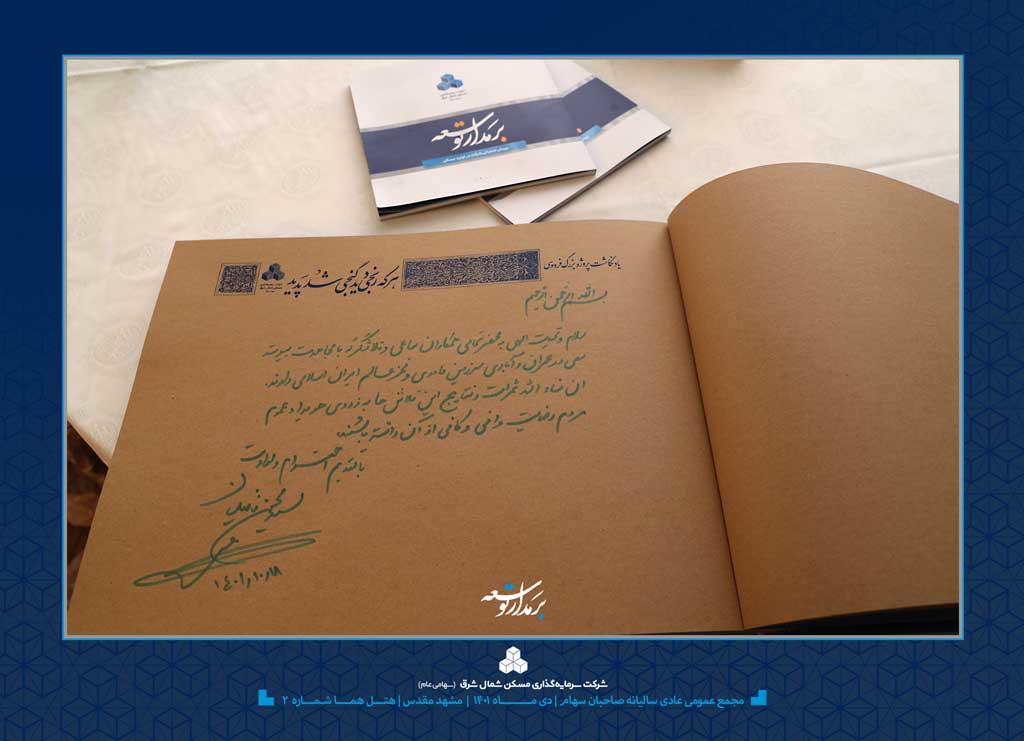 بر مدار توسعه
یادنگاشت پروژه بزرگ فردوسی
هر که رنجی دید گنجی شد پدید
بسم الله الرحمن الرحیم
سلام و تحیت الهی به محضر تمامی همکاران ساعی و تلاشگر که با مجاهدت پیوسته
سعی در عمران و آبادی سرزمین مادری و فخر عالم ایران اسلامی دارند.
ان شاء الله ثمرات و نتایج این تلاش ها به زودی هویدا و عموم
مردم رضایت وافی و کافی از آن داشته باشند.
با تقدیم احترام و ارادت
۱۴۰۱/۱۰/۱۸
بر مدار توسعه
شرکت سرمایه‌گذاری مسکن شمال شرق (سهامی عام)
مجمع عمومی عادی سالیانه صاحبان سهام | دی مـاه ۱۴۰۱ | مشهد مقدس | هتل همـا شمـاره ۲